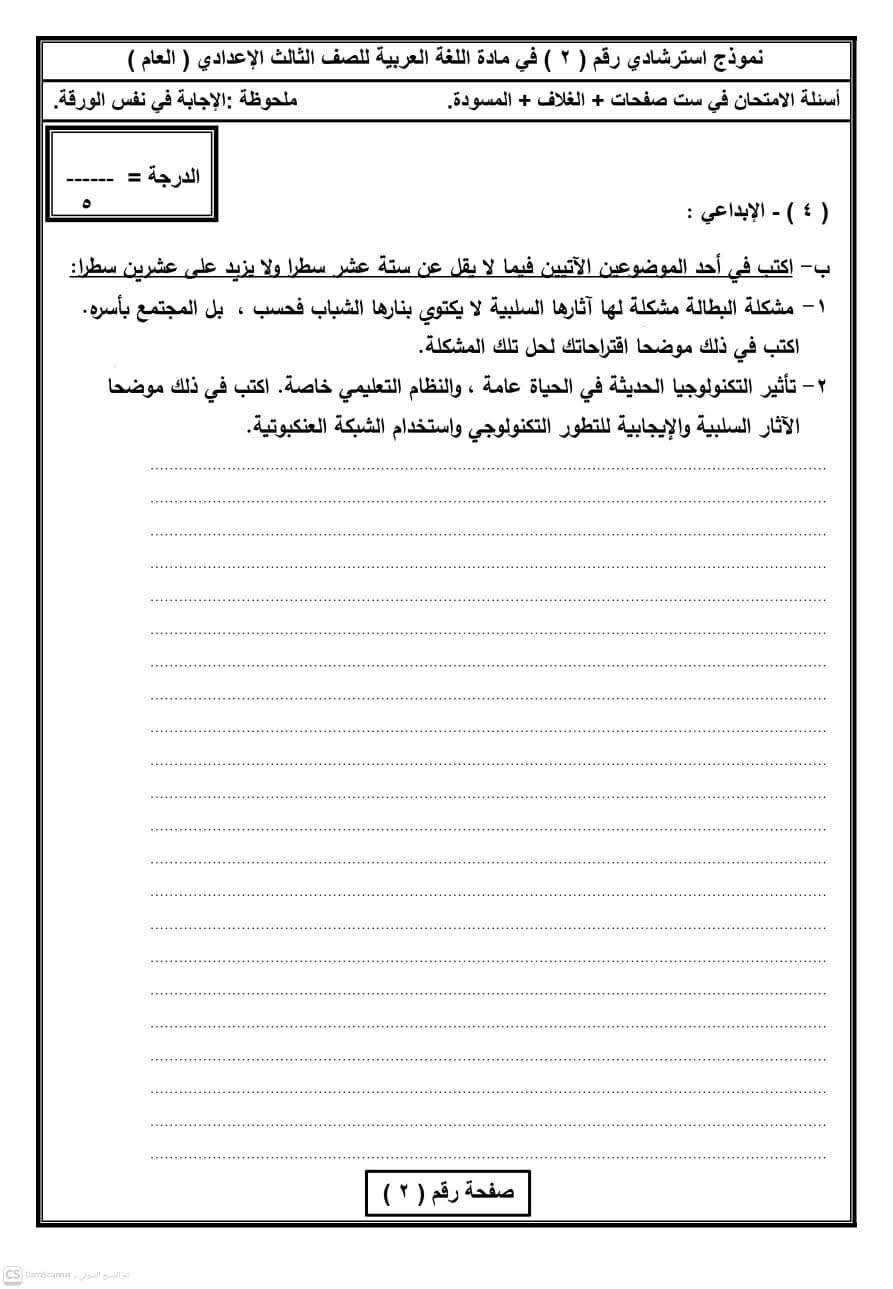 نموذج استرشادي رقم ( ٢ ) في مادة اللغة العربية للصف الثالث الإعدادي ( العام )
أسئلة الامتحان في ست صفحات + الغلاف + المسودة. ملحوظة :الإجابة في نفس الورقة.
الدرجة = ------
٥
( ٤ ) - الإبداعي :
ب- اكتب في أحد الموضوعين الآتيين فيما لا يقل عن ستة عشر سطرا ولا يزيد على عشرين سطرا:
١- مشكلة البطالة مشكلة لها آثارها السلبية لا يكتوي بنارها الشباب فحسب ، بل المجتمع بأسره.
اكتب في ذلك موضحا اقتراحاتك لحل تلك المشكلة.
٢- تأثير التكنولوجيا الحديثة في الحياة عامة ، والنظام التعليمي خاصة. اكتب في ذلك موضحا
الآثار السلبية والإيجابية للتطور التكنولوجي واستخدام الشبكة العنكبوتية.
صفحة رقم ( ٢ )
CS CamScanner تم المسح الضوئي بـ